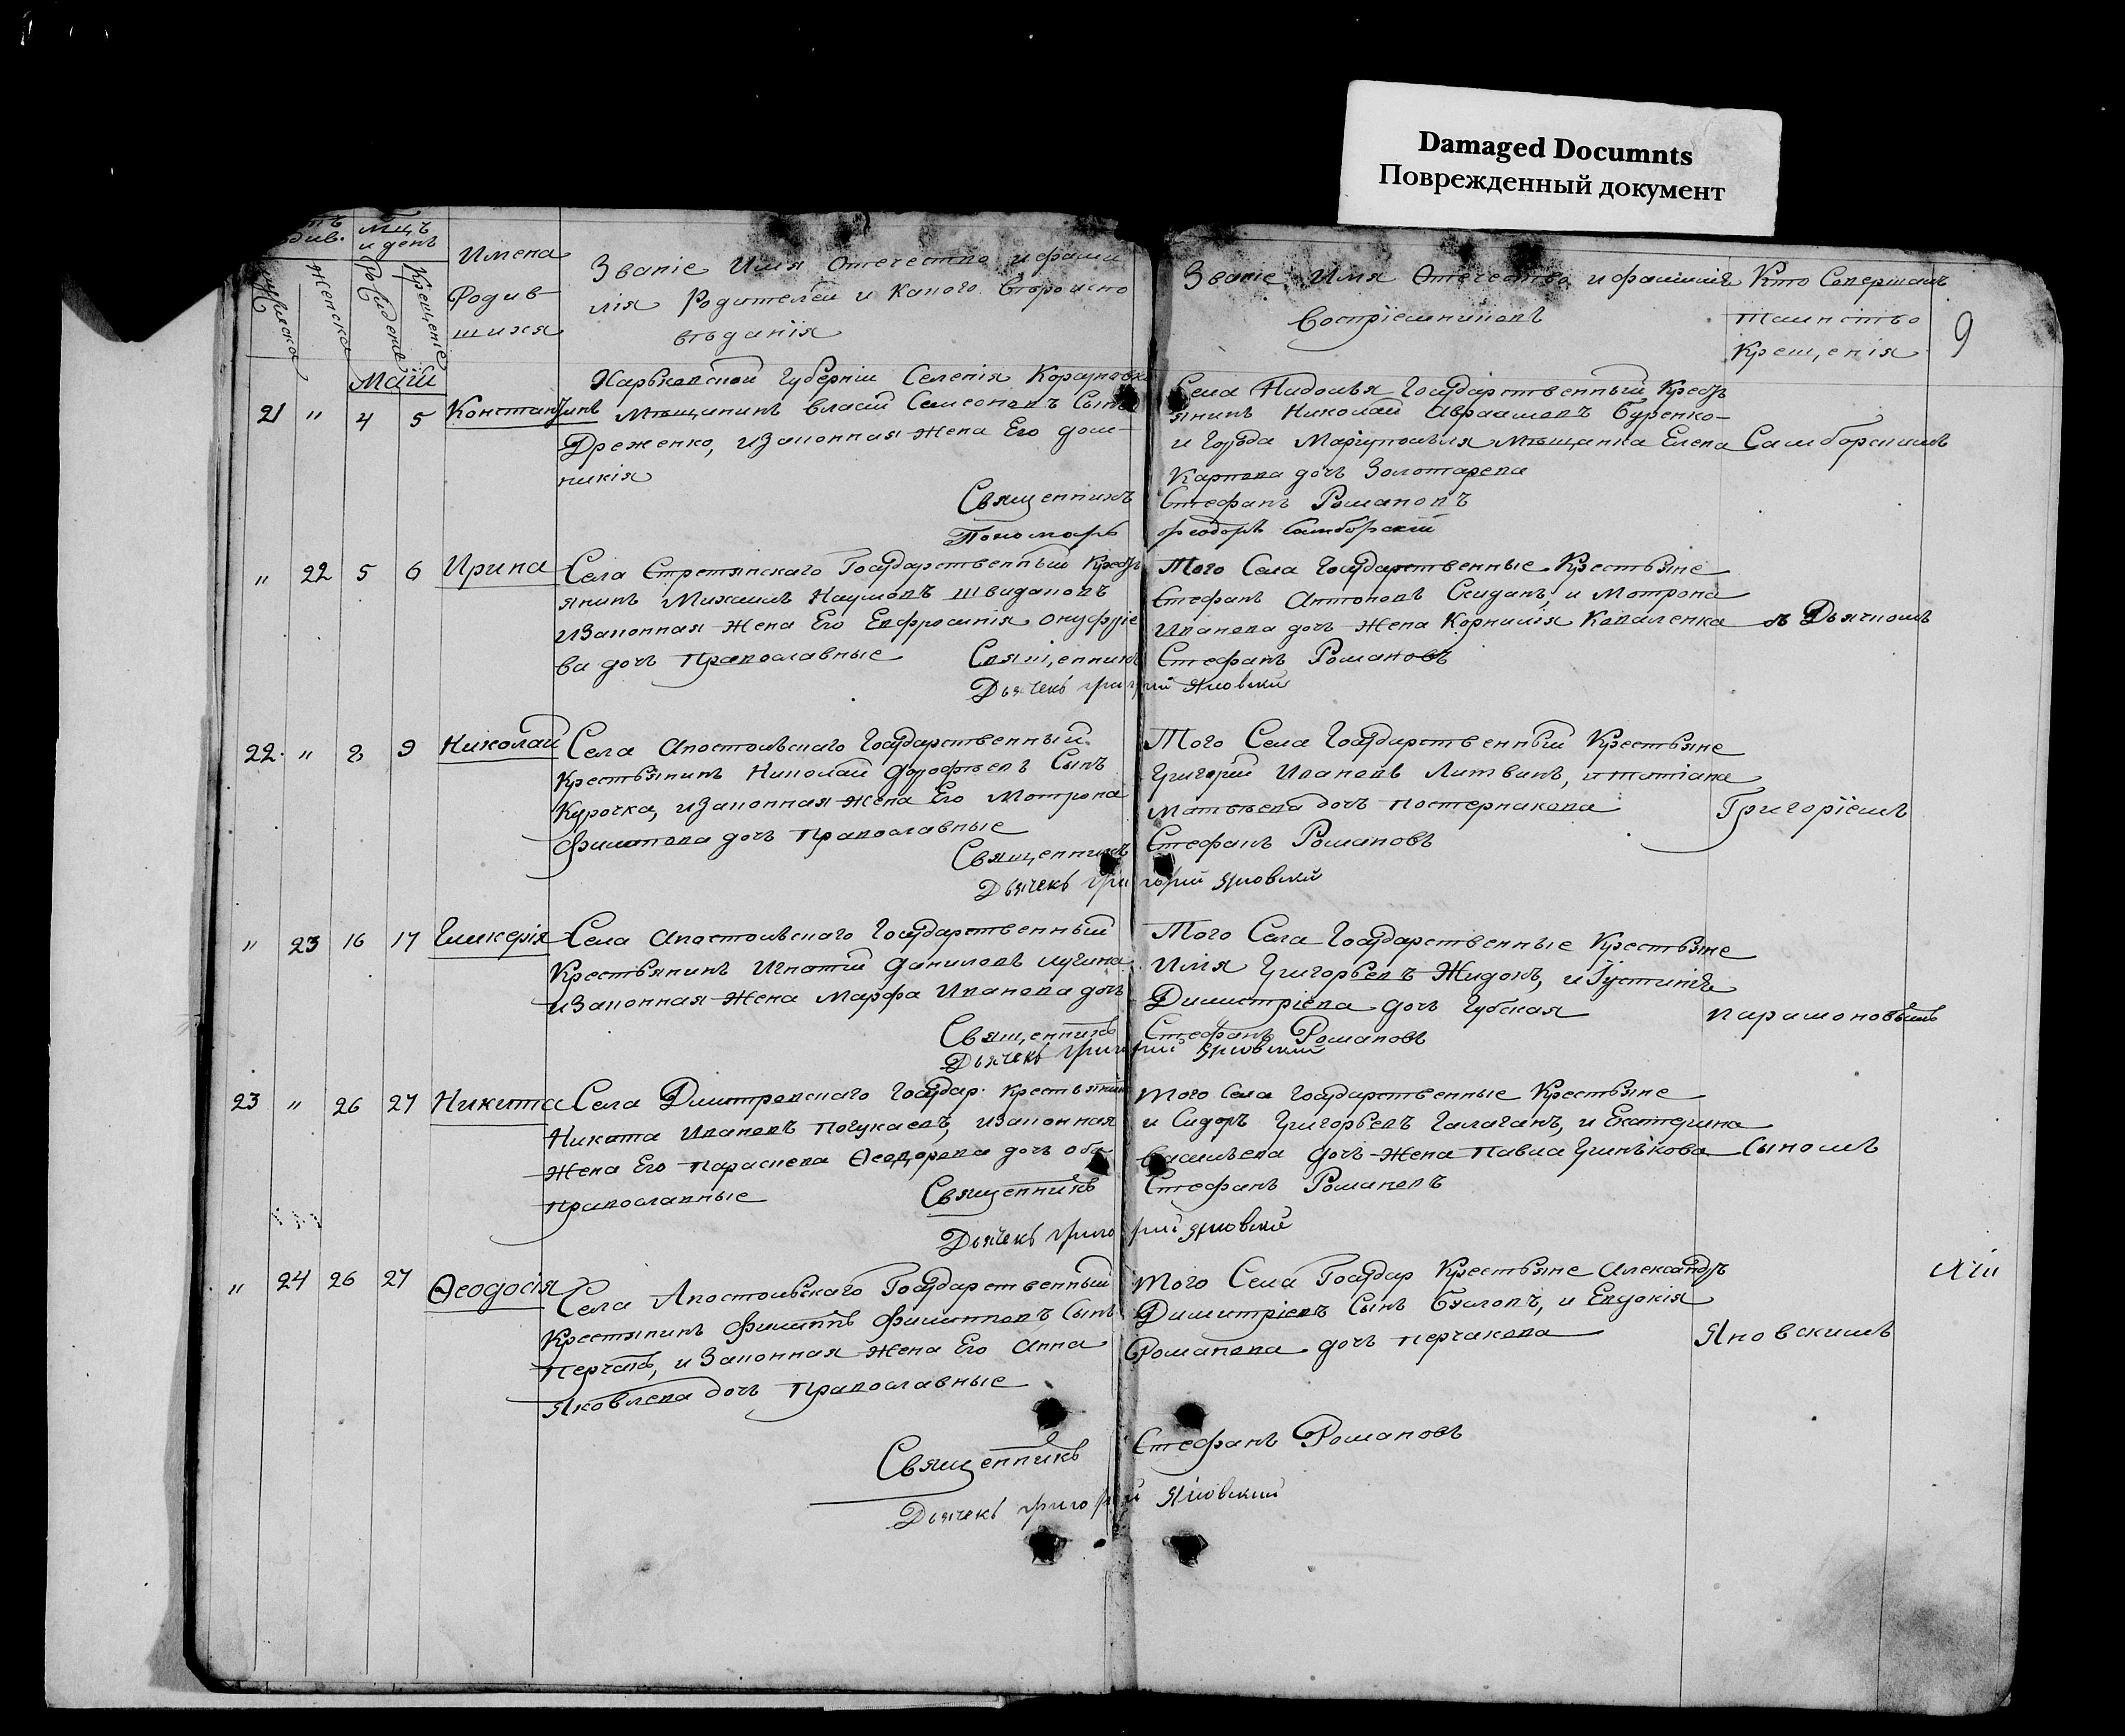 Damaged Documnts
Поврежденный документ
Мцъ и день
Женска
Рожденіе
Крещеніе
Имена Родив-шихся
Званіе Имя Отечество и фами
лія Родителей и какого Вѣроиспо
вѣданія
Званіе Имя Отечество и фамилія
Воспріемниковъ
Кто Совершалъ
таинство
Крещенія
9
Маій
Харьковской Губерніи Селенія
21 " 4 5 Константинъ
Мѣщанинъ Власій Семеоновъ Сынъ
Дреженко, и Законная Жена Его дом-
никія
Священникъ
Пономарь
Села Государственный Крест
янинъ Николай Авраамовъ Буренко
и Города Маріуполя Мѣщанка Елена
Карпова дочь Золотарева
Стефанъ Романовъ
Феодоръ Самборскій
Самборскимъ
" 22 5 6 Ирина
Села Стретинскаго Государственный Крест
янинъ Михаилъ Наумовъ Швидановъ
и Законная Жена Его Евфросинія Онуфріе
ва дочь Православные
Священникъ
Дьячекъ Григорій Яновскій
Того Села Государственные Крестьяне
Стефанъ Антоновъ Скиданъ, и Мотрона
Иванова дочь Жена Корнилія Коваленка
Стефанъ Романовъ
съ Дьячкомъ
22 " 8 9 Николай
Села Апостольскаго Государственный
Крестьянинъ Николай Дорофѣевъ Сынъ
Курочка, и Законная Жена Его Мотрона
Филипова дочь Православные
Священникъ
Дьячекъ Григорій Яновскій
Того Села Государственный Крестьяне
Григорій Ивановъ Литвинъ, и Татіана
Матвѣева дочь Постернакова
Стефанъ Романовъ
Григоріемъ
" 23 16 17 Гликерія
Села Апостольскаго Государственный
Крестьянинъ Игнатій Даниловъ Лучина
и Законная Жена Марфа Иванова дочь
Священникъ
Дьячекъ Григорій Яновскій
Того Села Государственные Крестьяне
Илія Григорьевъ Жидокъ, и Густинія
Димитріева дочь Губская
Стефанъ Романовъ
Парамоновымъ
23 " 26 27 Никита
Села Димтровскаго Государ. Крестьянинъ
Никита Ивановъ Почукаевъ, и Законная
Жена Его Параскева Ѳеодорова дочь оба
Православные
Священникъ
Дьячекъ Григорій Яновскій
Того Села Государственные Крестьяне
и Сидоръ Григорьевъ Галаганъ, и Екатерина
Васильева дочь Жена Павла Гринькова
Стефанъ Романовъ
Сыномъ
" 24 26 27 Ѳеодосія
Села Апостольскаго Государственный
Крестянинъ Филиппъ Филиповъ Сынъ
Перчакъ, и Законная Жена Его Анна
Яковлева дочь Православные
Священникъ
Дьячекъ Григорій Яновскій
Того Села Государ Крестьяне Александръ
Димитріевъ Сынъ Бѣловъ, и Евдокія
Романова дочь Перчакова
Стефанъ Романовъ
Яновскимъ